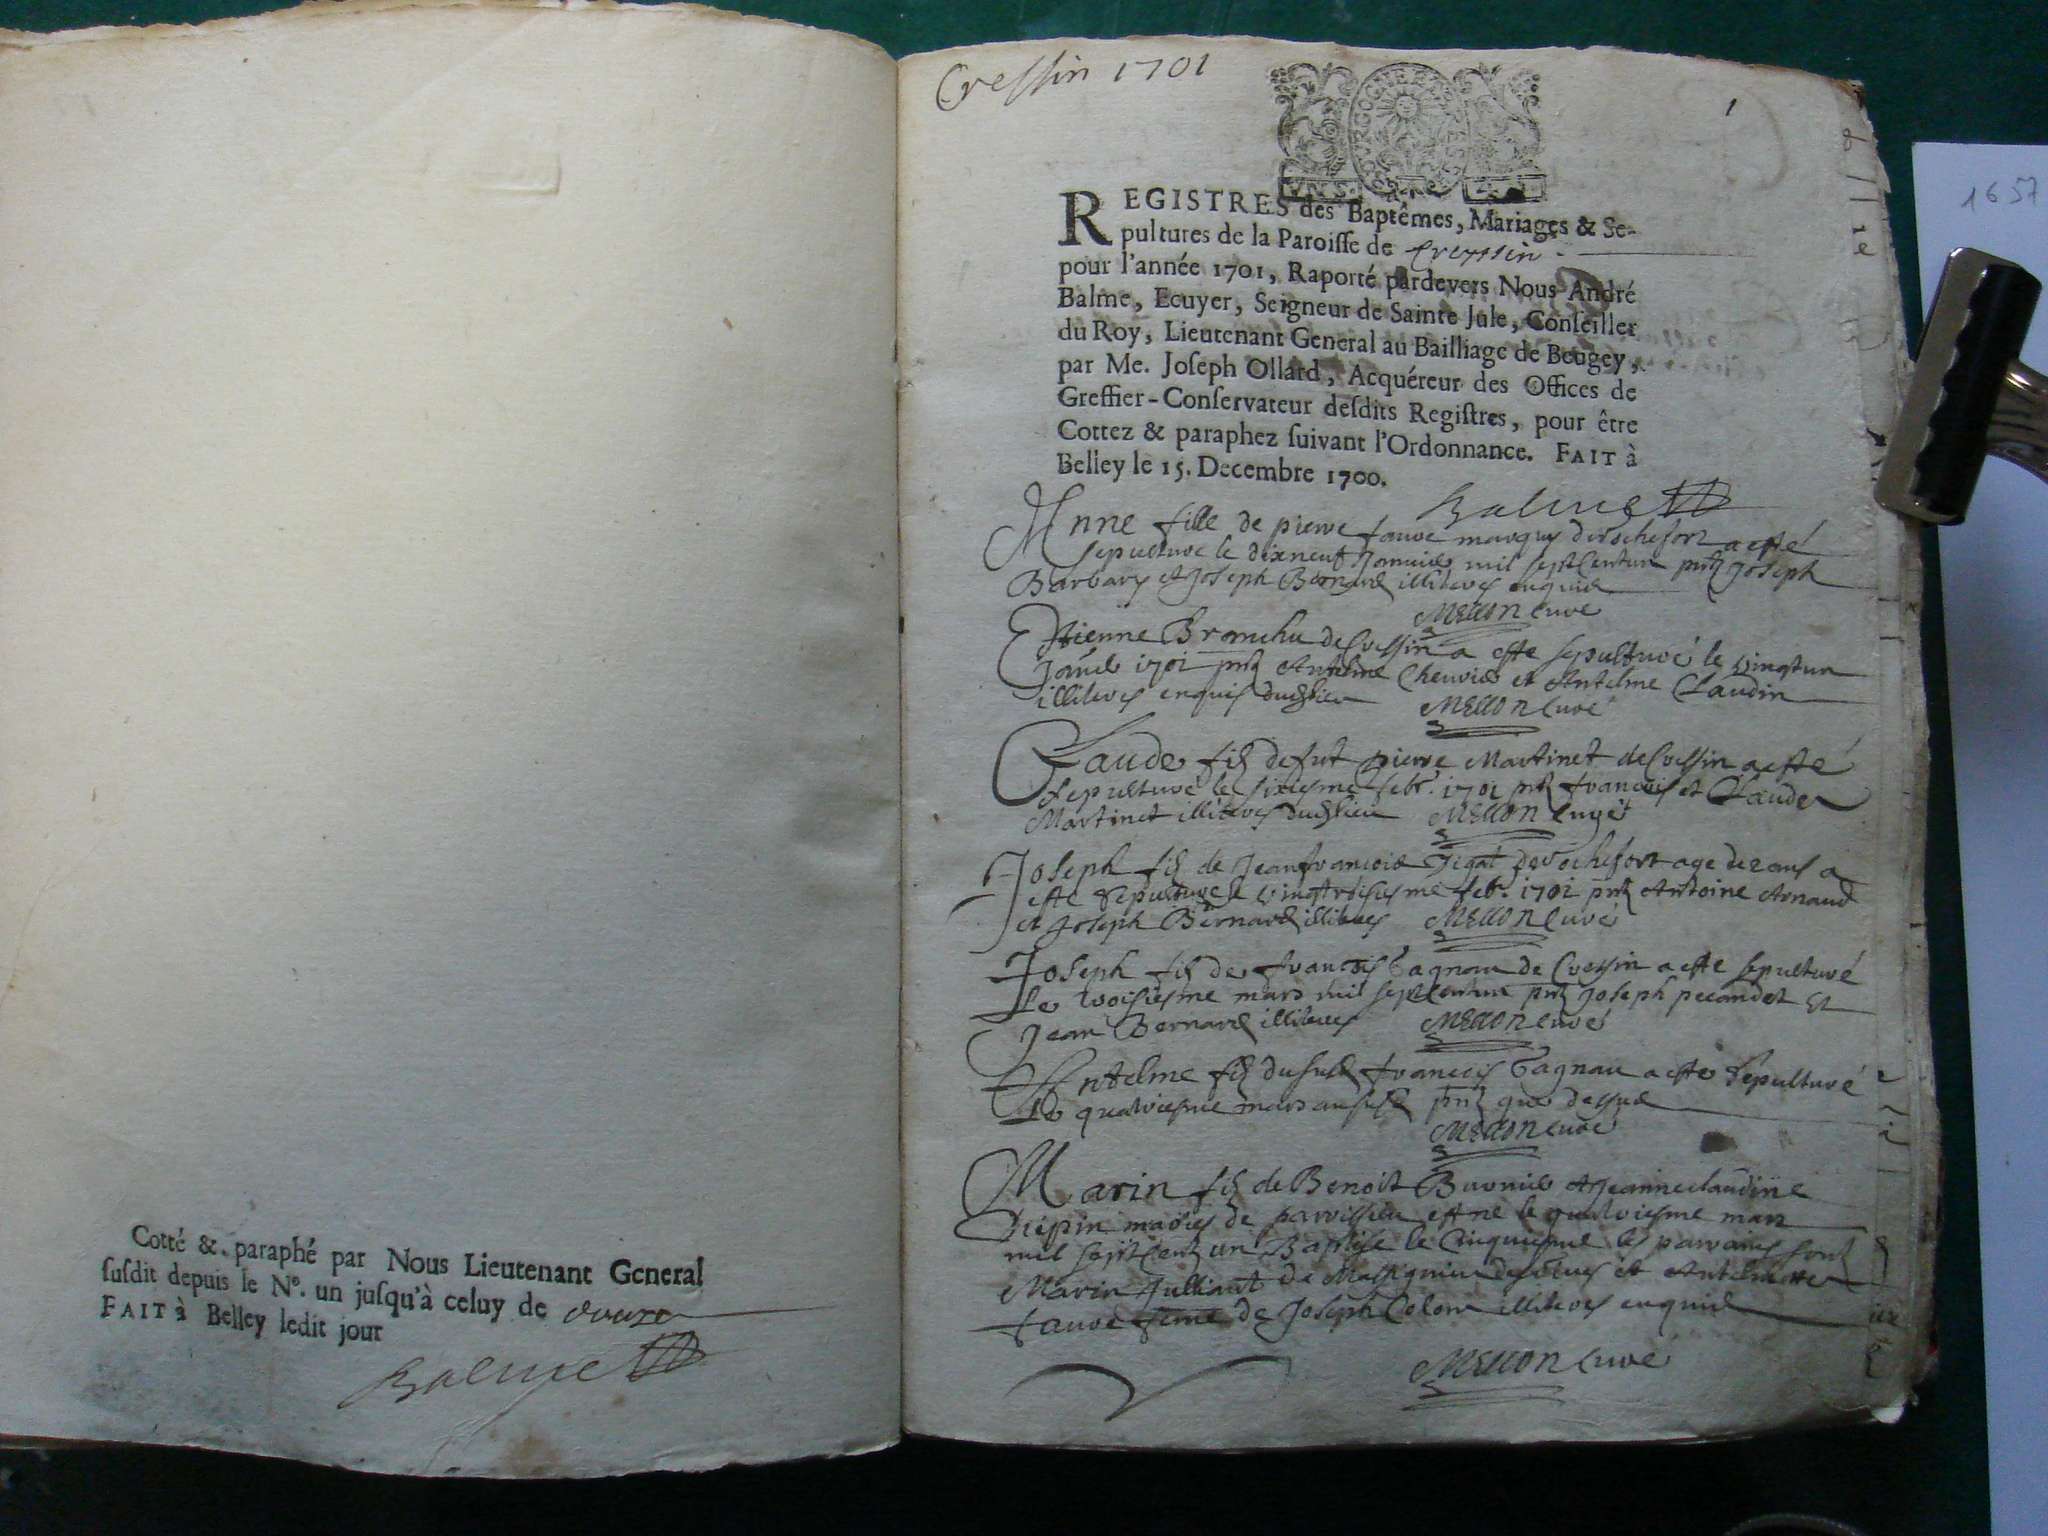 Cotté & paraphé par Nous Lieutenant General
susdit depuis le N°. un jusqu'à celuy de douze
FAIT à Belley ledit jour
Balme
Cressin 1701
1
BOURGOGNE
REGISTRES des Baptêmes, Mariages & Se-
pultures de la Paroisse de Creyssin
pour l'année 1701, Raporté pardevers Nous André
Balme, Ecuyer, Seigneur de Sainte Jule, Conseiller
du Roy, Lieutenant General au Bailliage de Beugey,
par Me. Joseph Ollard, Acquéreur des Offices de
Greffier-Conservateur desdits Registres, pour être
Cottez & paraphez suivant l'Ordonnance. FAIT à
Belley le 15. Decembre 1700.
Balme
Anne fille de pierre favre de rochefort a esté
sepulture le dixneuf mil sept Centun pnt Joseph
et Joseph Bernard illiteres enquis
Mellon Curé
Estienne Branchu de Cressin a este sepulturé le vingtun
1701 pnt Anthelme et Antelme Claudin
illiteres enquis dudit lieu
Mellon Curé
Claude fils de fut pierre Martinet de Cressin a esté
sepulturé le sixiesme febr. 1701 pnt francois et Claude
Martinet illiteres dudit lieu Mellon Curé
Joseph fils de Jeanfrancois de rochefort age de 2 ans a
este sepulture le vingtroisiesme febr. 1701 pnt Antoine Arnaud
et Joseph Bernard illiteres Mellon Curé
Joseph fils de francois de Cressin a este sepulturé
le troisiesme mars mil sept Centun pnt Joseph pecandet Et
Jean Bernard illiteres Mellon Curé
Antelme fils dususd francois a este sepulturé
le quatriesme mars pnt que dessus
Mellon Curé
Marin fils de Benoit et Jeanneclaudine
mariés de est né le quatriesme mars
mil sept Cent un Baptise le Cinquiesme les parrains sont
Marin Julliant de et
favre feme de Joseph Colom illiteres enquis
Mellon Curé
1657